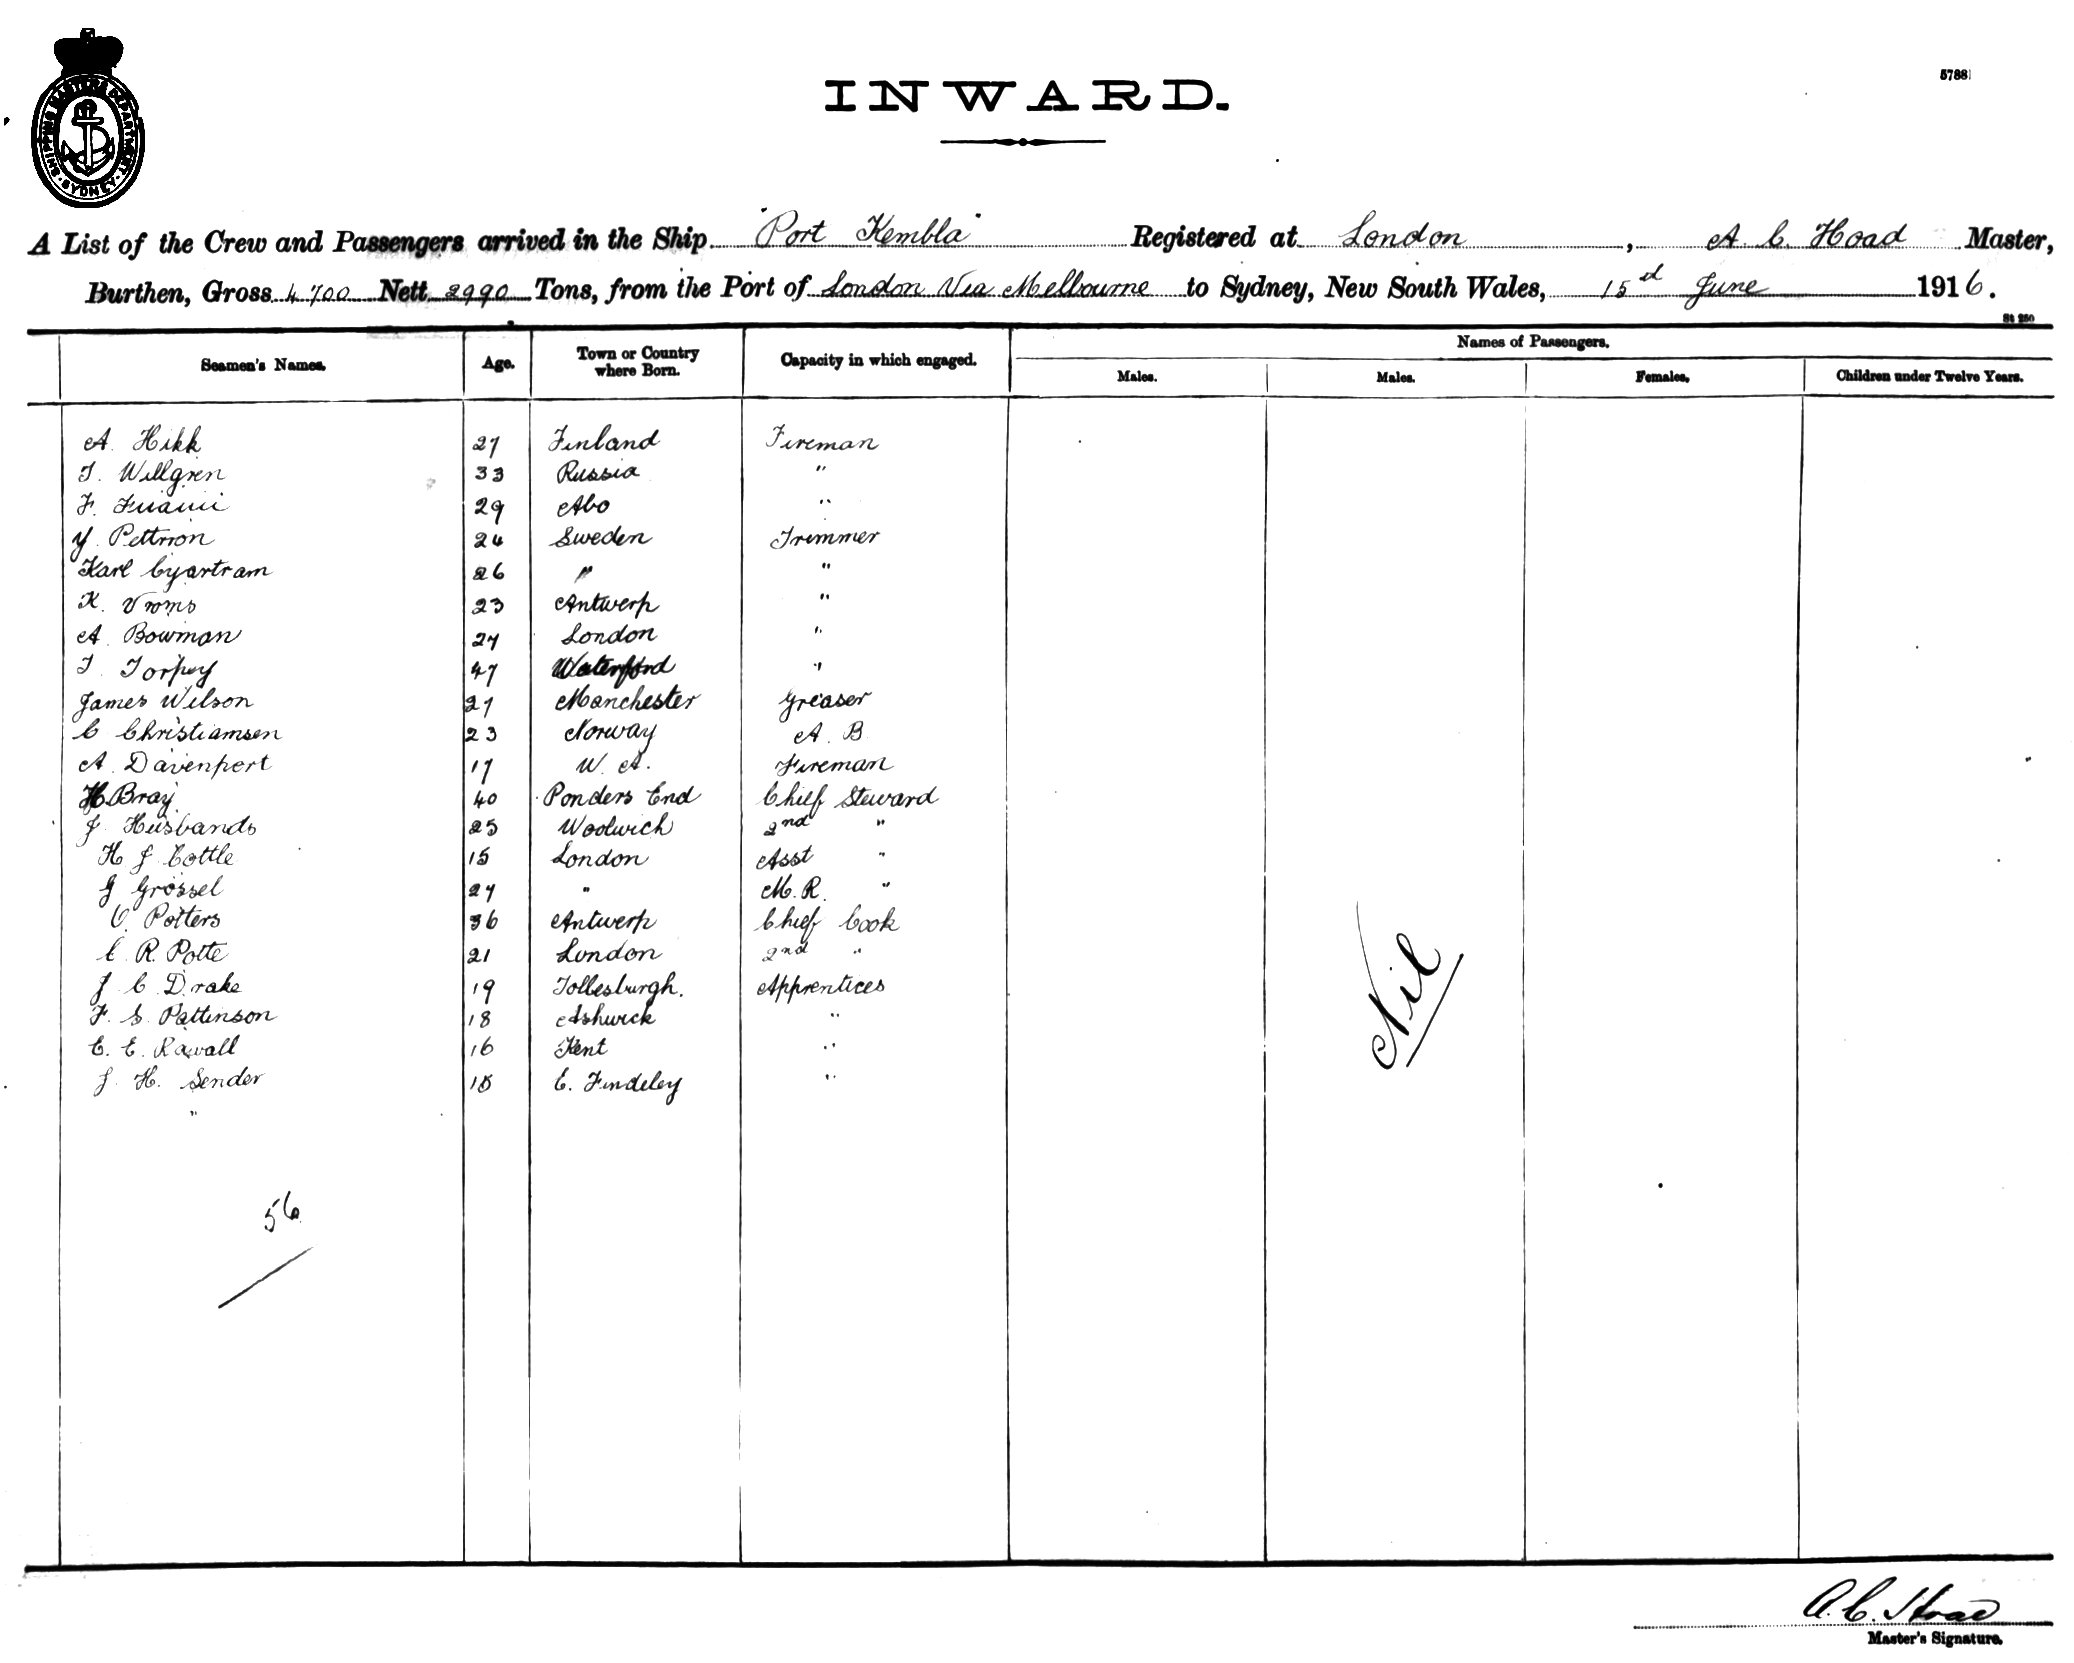 5788
SHIPPING MASTERS DEPARTMENT SYDNEY
INWARD.
A List of the Crew and Passengers arrived in the Ship "Port Kembla" Registered at London, A. C. Hoad Master,
Burthen, Gross 4700 Nett 2990 Tons, from the Port of London Via Melbourne to Sydney, New South Wales, 15th June 1916.
St 250
Seamen's Names. Age. Town or Country where Born. Capacity in which engaged. Names of Passengers.
Males. Males. Females. Children under Twelve Years.
A. Hikk 27 Finland Fireman
T. Willgren 33 Russia "
F. 29 Abo "
Y. 24 Sweden Trimmer
Karl 26 " "
K. Vroms 23 Antwerp "
A. Bowman 27 London "
T. Torpey 47 Waterford "
James Wilson 27 Manchester Greaser
C Christiamsen 23 Norway A. B
A. Davenport 17 W. A. Fireman
H. Bray 40 Ponders End Chief Steward
J. Husbands 25 Woolwich 2nd "
H J Cottle 15 London Asst "
J Grossel 27 " M. R. "
Potters 36 Antwerp Chief Cook
R. Potte 21 London 2nd "
J C Drake 19 Tollesburgh. Apprentices
F. S. Pattinson 18 Ashwick "
E. E. Rawall 16 Kent "
J. H. Sender 15 E. Findeley "
"
Nil
56
A. C. Hoad
Master's Signature.